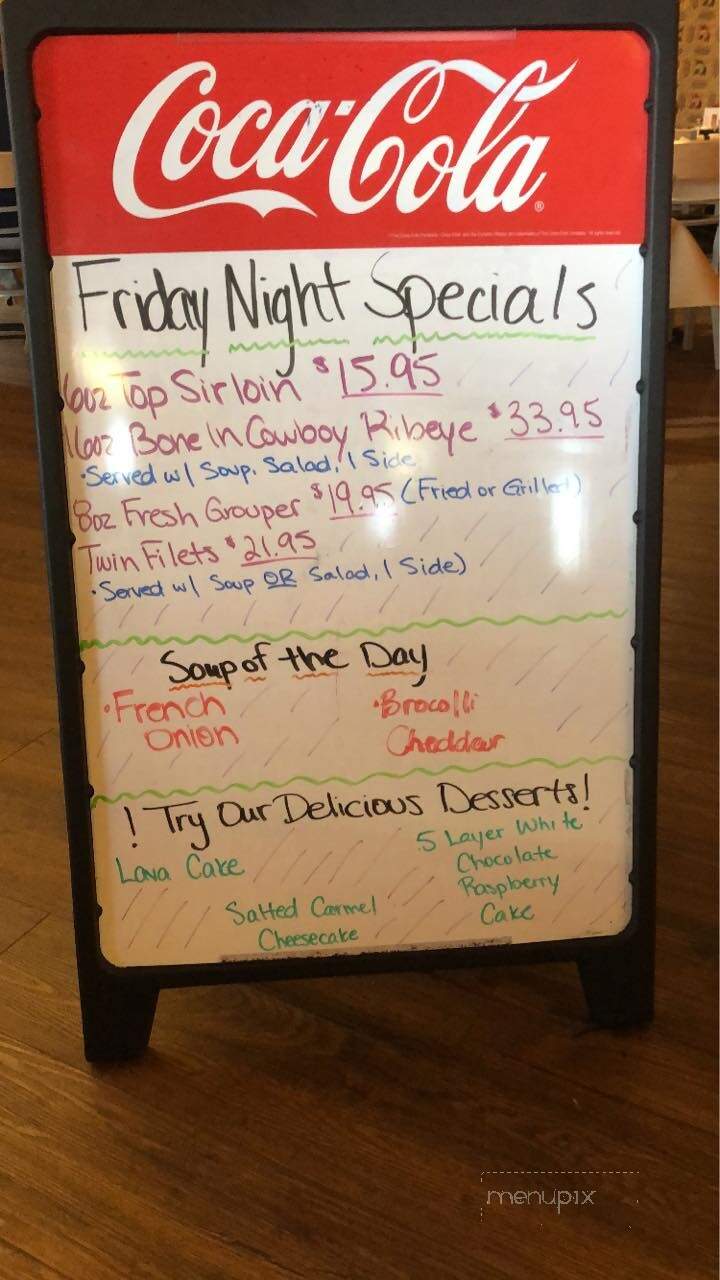 Coca-Cola
Friday Night Specials
6oz Top Sirloin $15.95
16oz Bone In Cowboy Ribeye $33.95
•Served w/ Soup, Salad, 1 Side
8oz Fresh Grouper $19.95 (Fried or Grilled)
Twin Filets $21.95
•Served w/ Soup OR Salad, 1 Side)
Soup of the Day
•French Onion
•Brocolli Cheddar
! Try Our Delicious Desserts!
Lava Cake
5 Layer White
Chocolate
Raspberry
Cake
Salted Carmel
Cheesecake
menupix